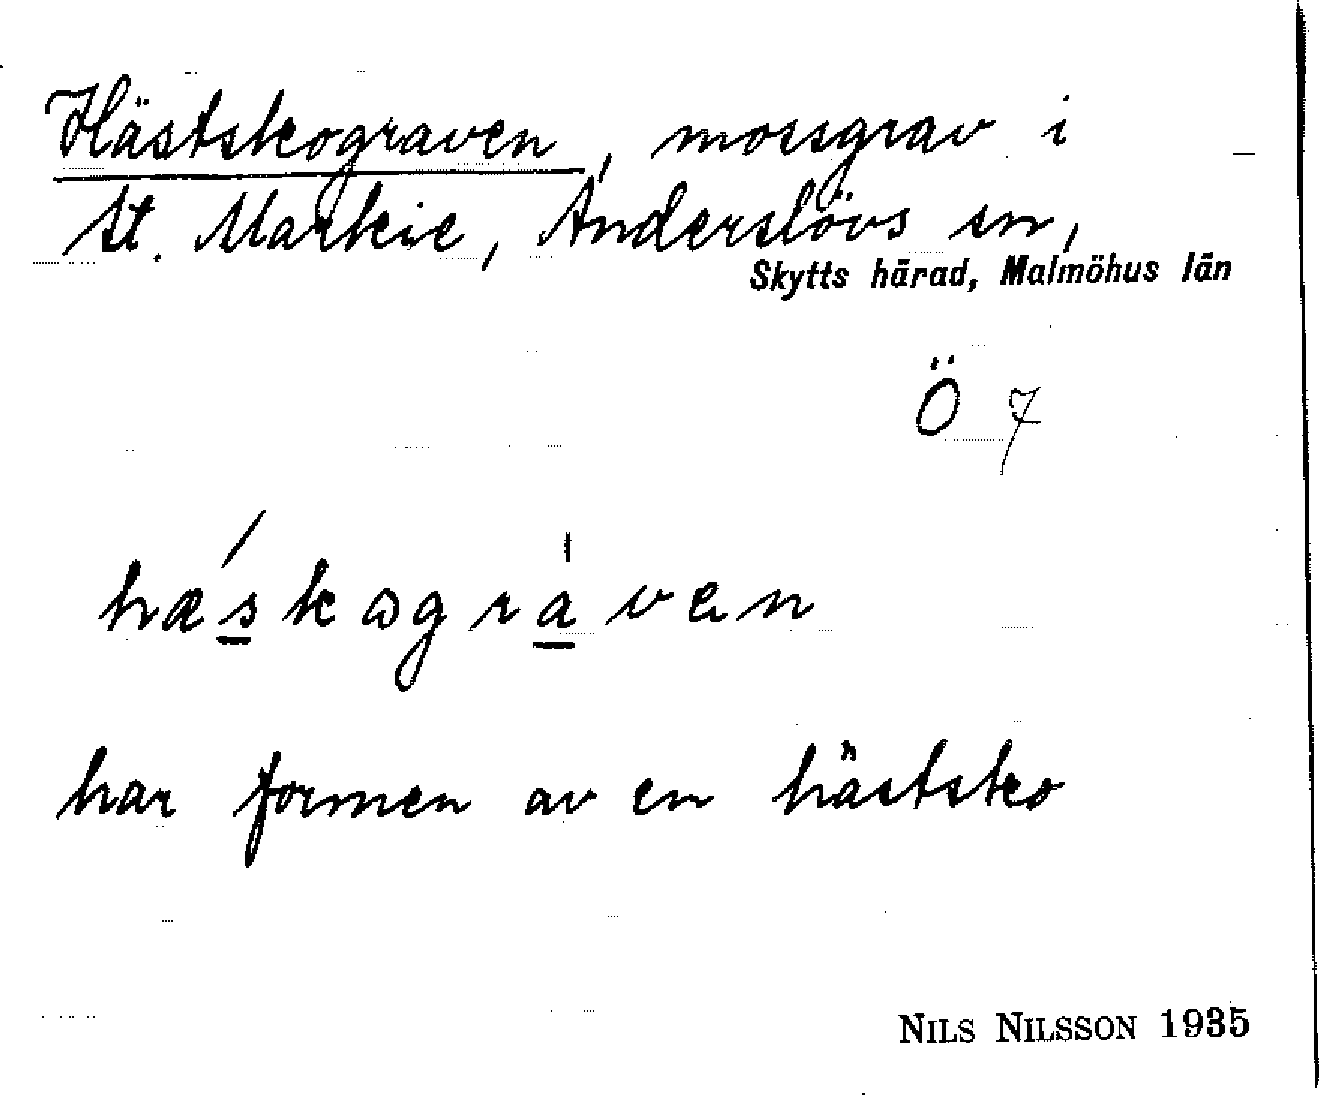 Hästskograven, mossgrav i
St. Markie, Anderslövs sn,
Skytts härad, Malmöhus län
Ö 7
hæskogra̍ven
har formen av en hästsko
NILS NILSSON 1935